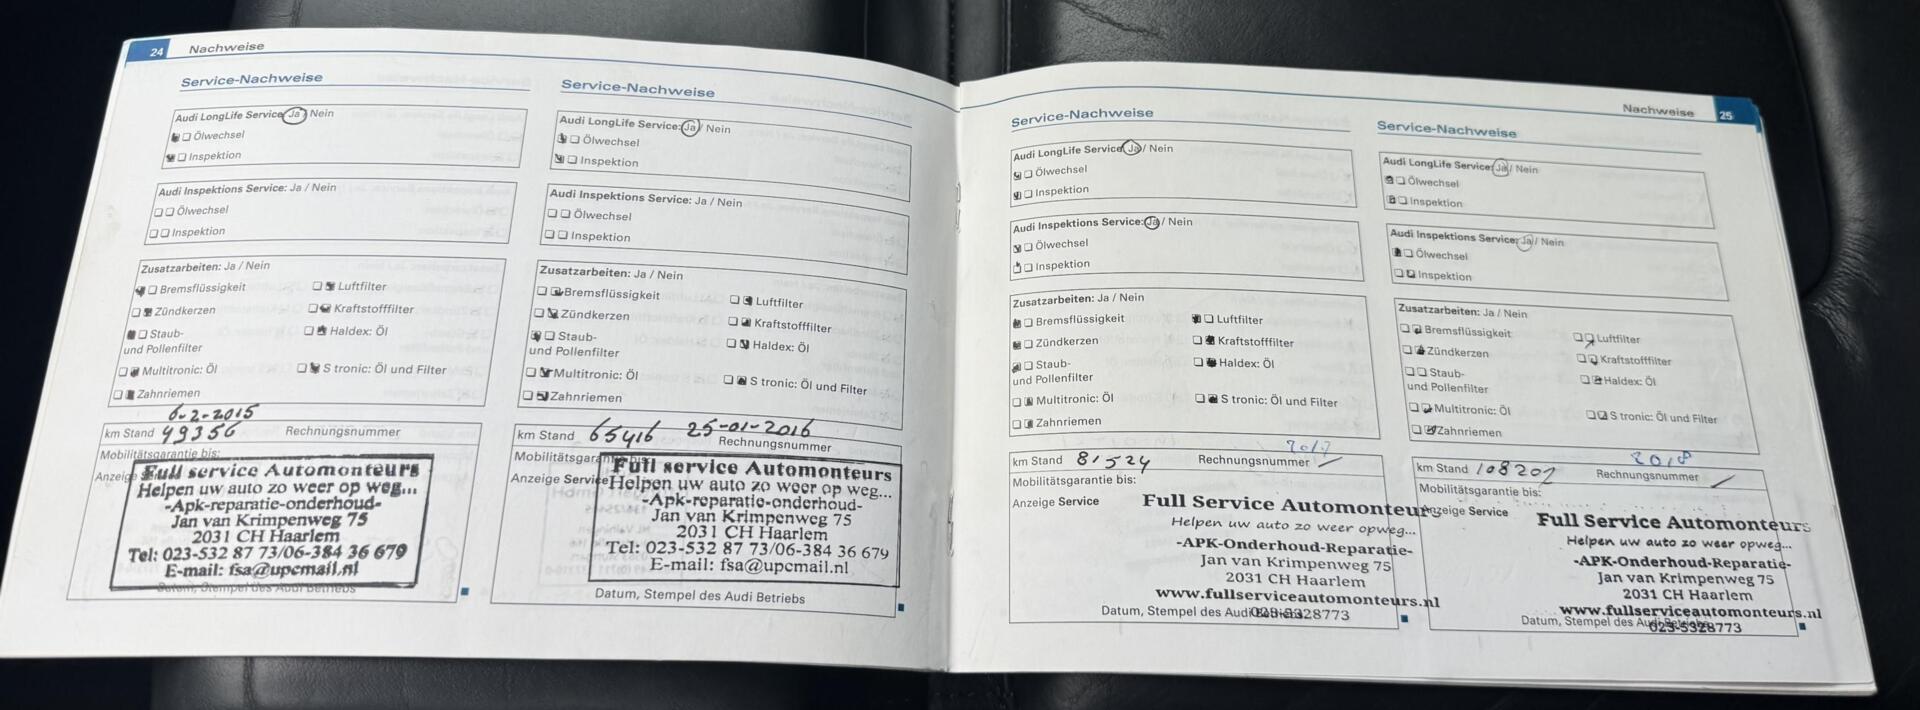 24 Nachweise
Service-Nachweise
Audi LongLife Service: Ja / Nein
Ölwechsel
Inspektion
Audi Inspektions Service: Ja / Nein
Ölwechsel
Inspektion
Zusatzarbeiten: Ja / Nein
Bremsflüssigkeit Luftfilter
Zündkerzen Kraftstofffilter
Staub- Haldex: Öl
und Pollenfilter
Multitronic: Öl S tronic: Öl und Filter
Zahnriemen
6-2-2015
km Stand 49356 Rechnungsnummer
Mobilitätsgarantie bis:
Anzeige
Full service Automonteurs
Helpen uw auto zo weer op weg...
-Apk-reparatie-onderhoud-
Jan van Krimpenweg 75
2031 CH Haarlem
Tel: 023-532 87 73/06-384 36 679
E-mail: fsa@upcmail.nl
Datum, Stempel des Audi Betriebs
Service-Nachweise
Audi LongLife Service: Ja / Nein
Ölwechsel
Inspektion
Audi Inspektions Service: Ja / Nein
Ölwechsel
Inspektion
Zusatzarbeiten: Ja / Nein
Bremsflüssigkeit Luftfilter
Zündkerzen Kraftstofffilter
Staub- Haldex: Öl
und Pollenfilter
Multitronic: Öl S tronic: Öl und Filter
Zahnriemen
km Stand 65416 25-01-2016
Rechnungsnummer
Mobilitätsgarantie bis:
Anzeige Service
Full service Automonteurs
Helpen uw auto zo weer op weg...
-Apk-reparatie-onderhoud-
Jan van Krimpenweg 75
2031 CH Haarlem
Tel: 023-532 87 73/06-384 36 679
E-mail: fsa@upcmail.nl
Datum, Stempel des Audi Betriebs
Nachweise 25
Service-Nachweise
Audi LongLife Service: Ja / Nein
Ölwechsel
Inspektion
Audi Inspektions Service: Ja / Nein
Ölwechsel
Inspektion
Zusatzarbeiten: Ja / Nein
Bremsflüssigkeit Luftfilter
Zündkerzen Kraftstofffilter
Staub- Haldex: Öl
und Pollenfilter
Multitronic: Öl S tronic: Öl und Filter
Zahnriemen
2017
km Stand 81524 Rechnungsnummer
Mobilitätsgarantie bis:
Anzeige Service
Full Service Automonteurs
Helpen uw auto zo weer opweg...
-APK-Onderhoud-Reparatie-
Jan van Krimpenweg 75
2031 CH Haarlem
www.fullserviceautomonteurs.nl
023-5328773
Datum, Stempel des Audi Betriebs
Service-Nachweise
Audi LongLife Service: Ja / Nein
Ölwechsel
Inspektion
Audi Inspektions Service: Ja / Nein
Ölwechsel
Inspektion
Zusatzarbeiten: Ja / Nein
Bremsflüssigkeit Luftfilter
Zündkerzen Kraftstofffilter
Staub- Haldex: Öl
und Pollenfilter
Multitronic: Öl S tronic: Öl und Filter
Zahnriemen
2018
km Stand Rechnungsnummer
Mobilitätsgarantie bis:
Anzeige Service
Full Service Automonteurs
Helpen uw auto zo weer opweg...
-APK-Onderhoud-Reparatie-
Jan van Krimpenweg 75
2031 CH Haarlem
www.fullserviceautomonteurs.nl
023-5328773
Datum, Stempel des Audi Betriebs